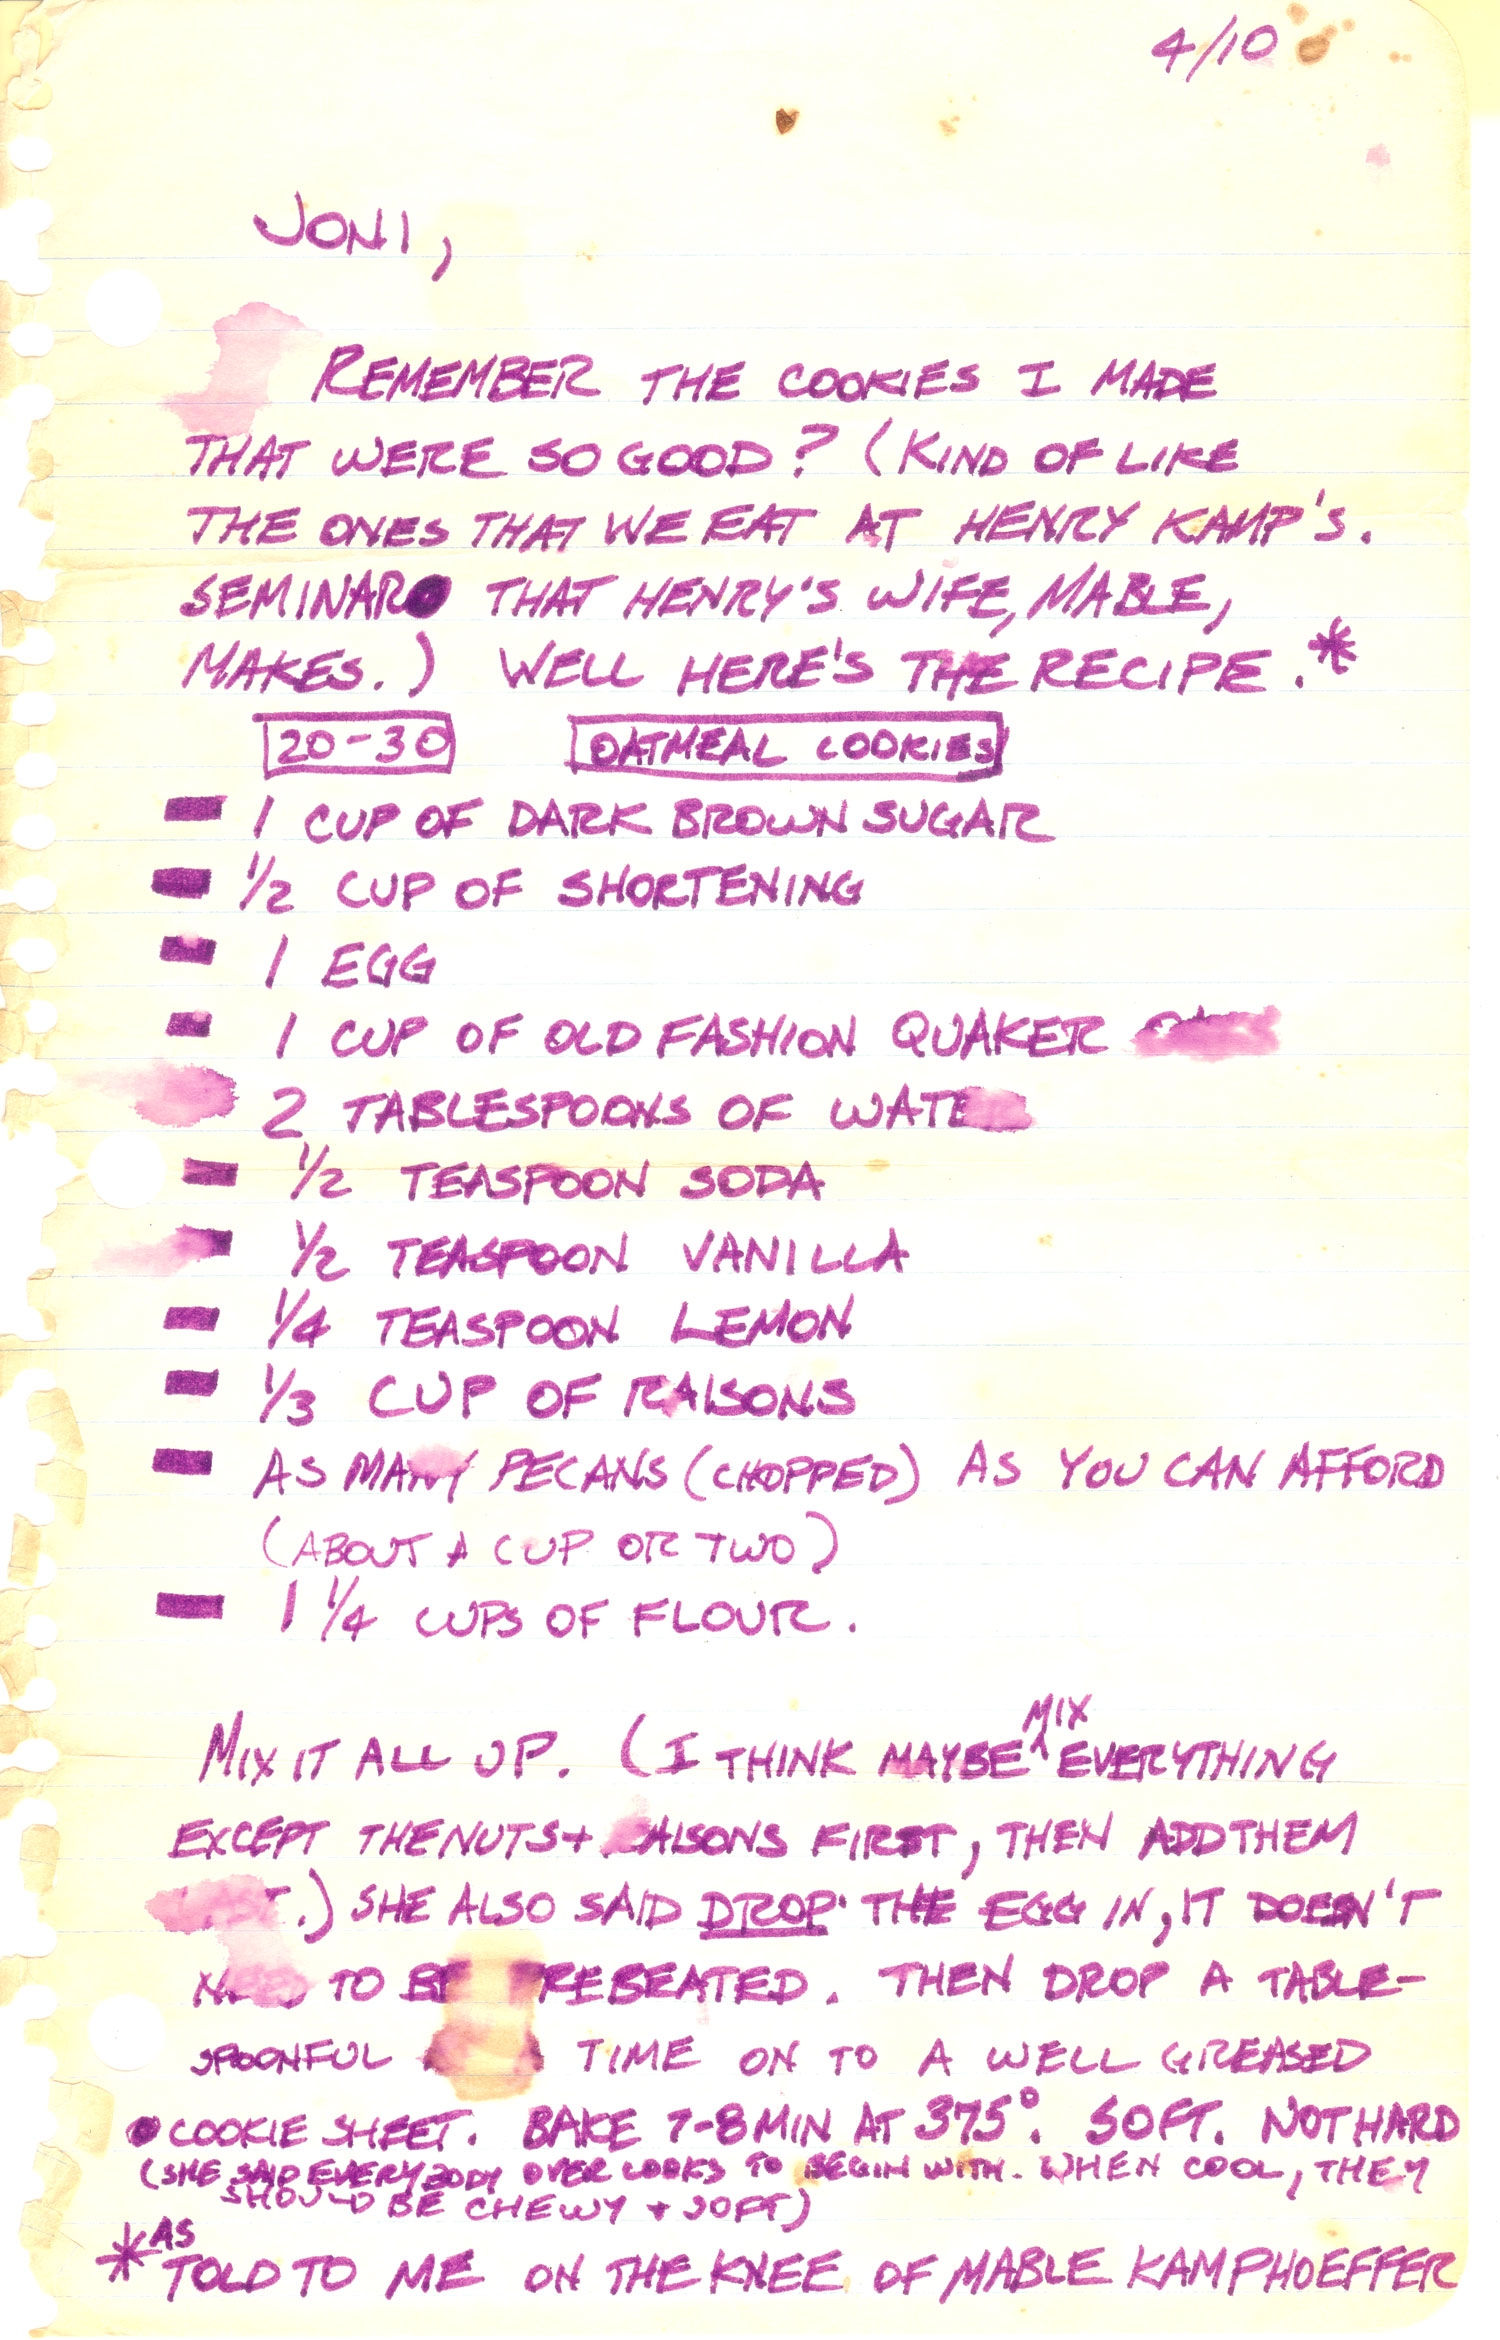 4/10
JONI,
REMEMBER THE COOKIES I MADE
THAT WERE SO GOOD? (KIND OF LIKE
THE ONES THAT WE EAT AT HENRY KAMP'S.
SEMINAR THAT HENRY'S WIFE, MABLE,
MAKES.) WELL HERE'S THE RECIPE.*
20-30 OATMEAL COOKIES
1 CUP OF DARK BROWN SUGAR
1/2 CUP OF SHORTENING
1 EGG
1 CUP OF OLD FASHION QUAKER
2 TABLESPOONS OF WATER
1/2 TEASPOON SODA
1/2 TEASPOON VANILLA
1/4 TEASPOON LEMON
1/3 CUP OF RAISONS
AS MANY PECANS (CHOPPED) AS YOU CAN AFFORD
(ABOUT A CUP OR TWO)
1 1/4 CUPS OF FLOUR.
MIX IT ALL UP. (I THINK MAYBE MIX EVERYTHING
EXCEPT THE NUTS + RAISONS FIRST, THEN ADD THEM
.) SHE ALSO SAID DROP THE EGG IN, IT DOESN'T
NEED TO BE PREBEATED. THEN DROP A TABLE-
SPOONFUL TIME ON TO A WELL GREASED
COOKIE SHEET. BAKE 7-8 MIN AT 375°. SOFT. NOT HARD
(SHE SAID EVERYBODY OVER COOKS TO BEGIN WITH. WHEN COOL, THEY
SHOULD BE CHEWY + SOFT)
*AS TOLD TO ME ON THE KNEE OF MABLE KAMPHOEFFER